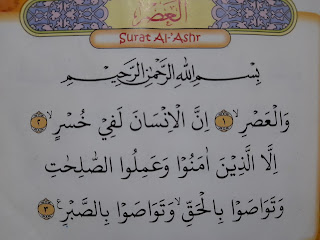 العصر
Surat Al-'Ashr
بِسْمِ اللهِ الرَّحْمٰنِ الرَّحِيْمِ
وَالْعَصْرِۙ ﴿١﴾ اِنَّ الْاِنْسَانَ لَفِيْ خُسْرٍۙ ﴿٢﴾
اِلَّا الَّذِيْنَ اٰمَنُوْا وَعَمِلُوا الصّٰلِحٰتِ
وَتَوَاصَوْا بِالْحَقِّۙ وَتَوَاصَوْا بِالصَّبْرِࣖ ﴿٣﴾